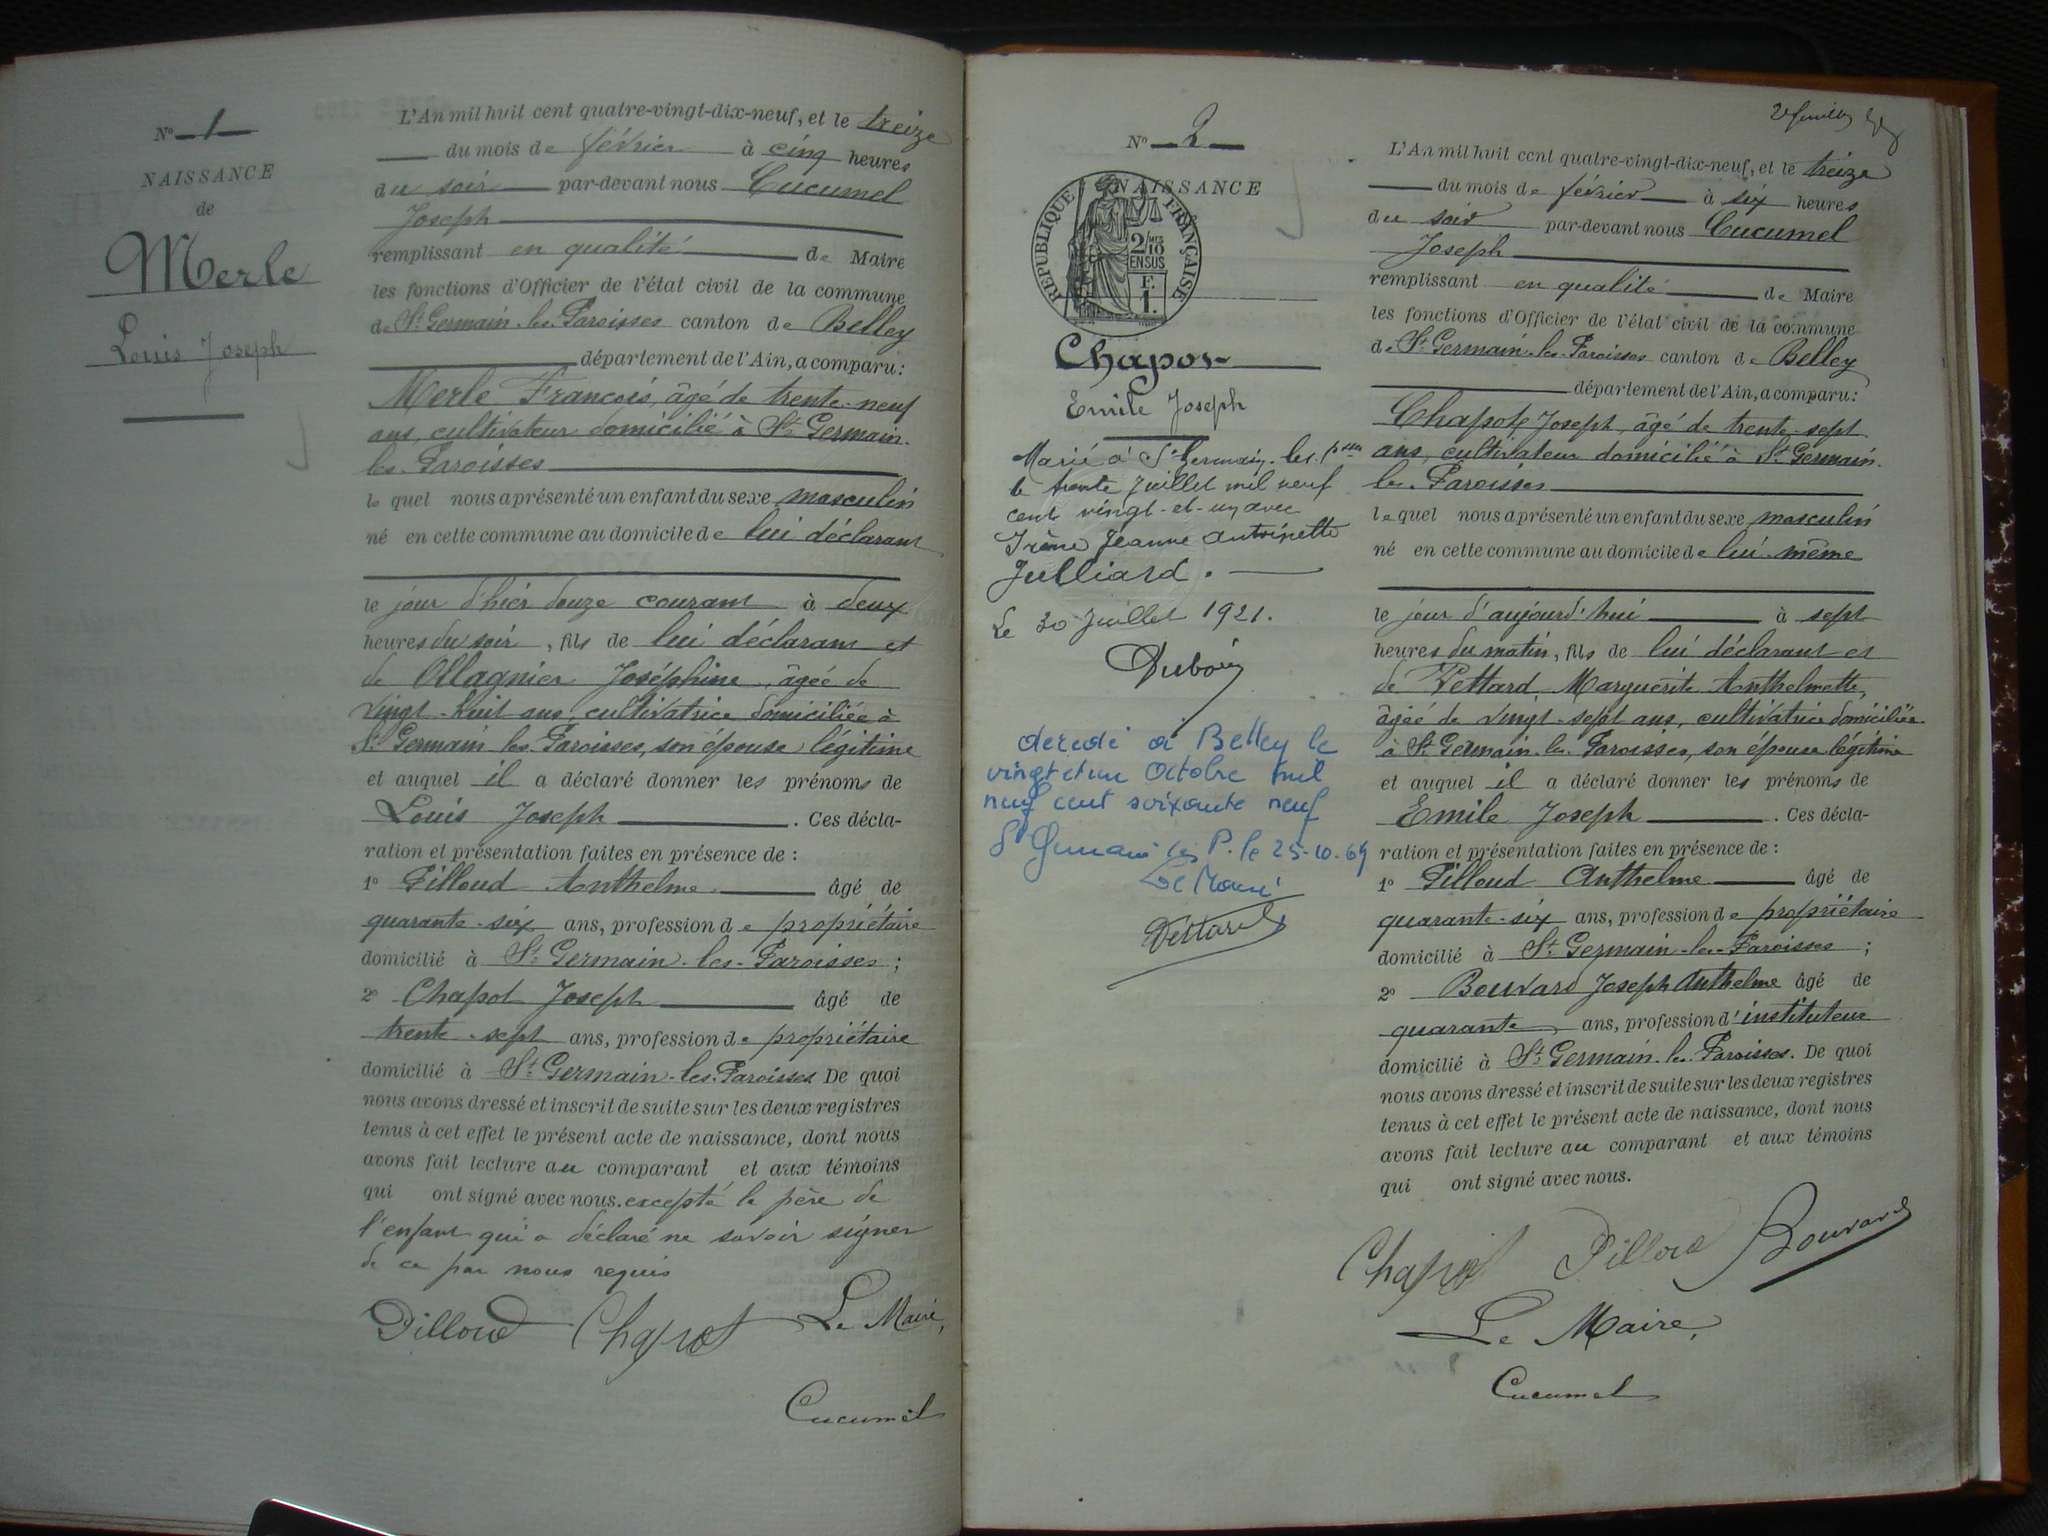 N° 1
NAISSANCE
de
Merle
Louis Joseph
L'An mil huit cent quatre-vingt-dix-neuf, et le treize
du mois de février à cinq heures
du soir par-devant nous Cucumel
Joseph
remplissant en qualité de Maire
les fonctions d'Officier de l'état civil de la commune
de St Germain-les-Paroisses canton de Belley
département de l'Ain, a comparu:
Merle François, âgé de trente-neuf
ans, cultivateur domicilié à St Germain-
les-Paroisses
le quel nous a présenté un enfant du sexe masculin
né en cette commune au domicile de lui déclarant
le jour d'hier douze courant à deux
heures du soir, fils de lui déclarant et
de Ollagnier Joséphine, âgée de
vingt-huit ans, cultivatrice domiciliée à
St Germain-les-Paroisses, son épouse légitime
et auquel il a déclaré donner les prénoms de
Louis Joseph. Ces décla-
ration et présentation faites en présence de :
1° Pilloud Anthelme âgé de
quarante-six ans, profession de propriétaire
domicilié à St Germain-les-Paroisses ;
2° Chapot Joseph âgé de
trente-sept ans, profession de propriétaire
domicilié à St Germain-les-Paroisses De quoi
nous avons dressé et inscrit de suite sur les deux registres
tenus à cet effet le présent acte de naissance, dont nous
avons fait lecture au comparant et aux témoins
qui ont signé avec nous. excepté le père de
l'enfant qui a déclaré ne savoir signer
de ce par nous requis
Pilloud Chapot Le Maire,
Cucumel
N° 2
NAISSANCE
RÉPUBLIQUE FRANÇAISE
2/10MES
EN SUS
F.
1.
Chapot
Emile Joseph
Marié à St Germain-les-Psses
le trente Juillet mil neuf
cent vingt-et-un avec
Irène Jeanne Antoinette
Julliard.
Le 30 Juillet 1921.
décédé à Belley le
vingt et un Octobre mil
neuf cent soixante neuf
St Germain les P. le 25-10-69
Le Maire
2e feuillet
L'An mil huit cent quatre-vingt-dix-neuf, et le treize
du mois de février à six heures
du soir par-devant nous Cucumel
Joseph
remplissant en qualité de Maire
les fonctions d'Officier de l'état civil de la commune
de St Germain-les-Paroisses canton de Belley
département de l'Ain, a comparu:
Chapot Joseph, âgé de trente-sept
ans, cultivateur domicilié à St Germain-
les-Paroisses
le quel nous a présenté un enfant du sexe masculin
né en cette commune au domicile de lui-même
le jour d'aujourd'hui à sept
heures du matin, fils de lui déclarant et
de Pettard, Marguerite Anthelmette,
âgée de vingt-sept ans, cultivatrice domiciliée
à St Germain-les-Paroisses, son épouse légitime
et auquel il a déclaré donner les prénoms de
Emile Joseph. Ces décla-
ration et présentation faites en présence de :
1° Pilloud Anthelme âgé de
quarante-six ans, profession de propriétaire
domicilié à St Germain-les-Paroisses ;
2° Bouvard Joseph Anthelme âgé de
quarante ans, profession d'instituteur
domicilié à St Germain-les-Paroisses. De quoi
nous avons dressé et inscrit de suite sur les deux registres
tenus à cet effet le présent acte de naissance, dont nous
avons fait lecture au comparant et aux témoins
qui ont signé avec nous.
Chapot Pilloud Bouvard
Le Maire,
Cucumel